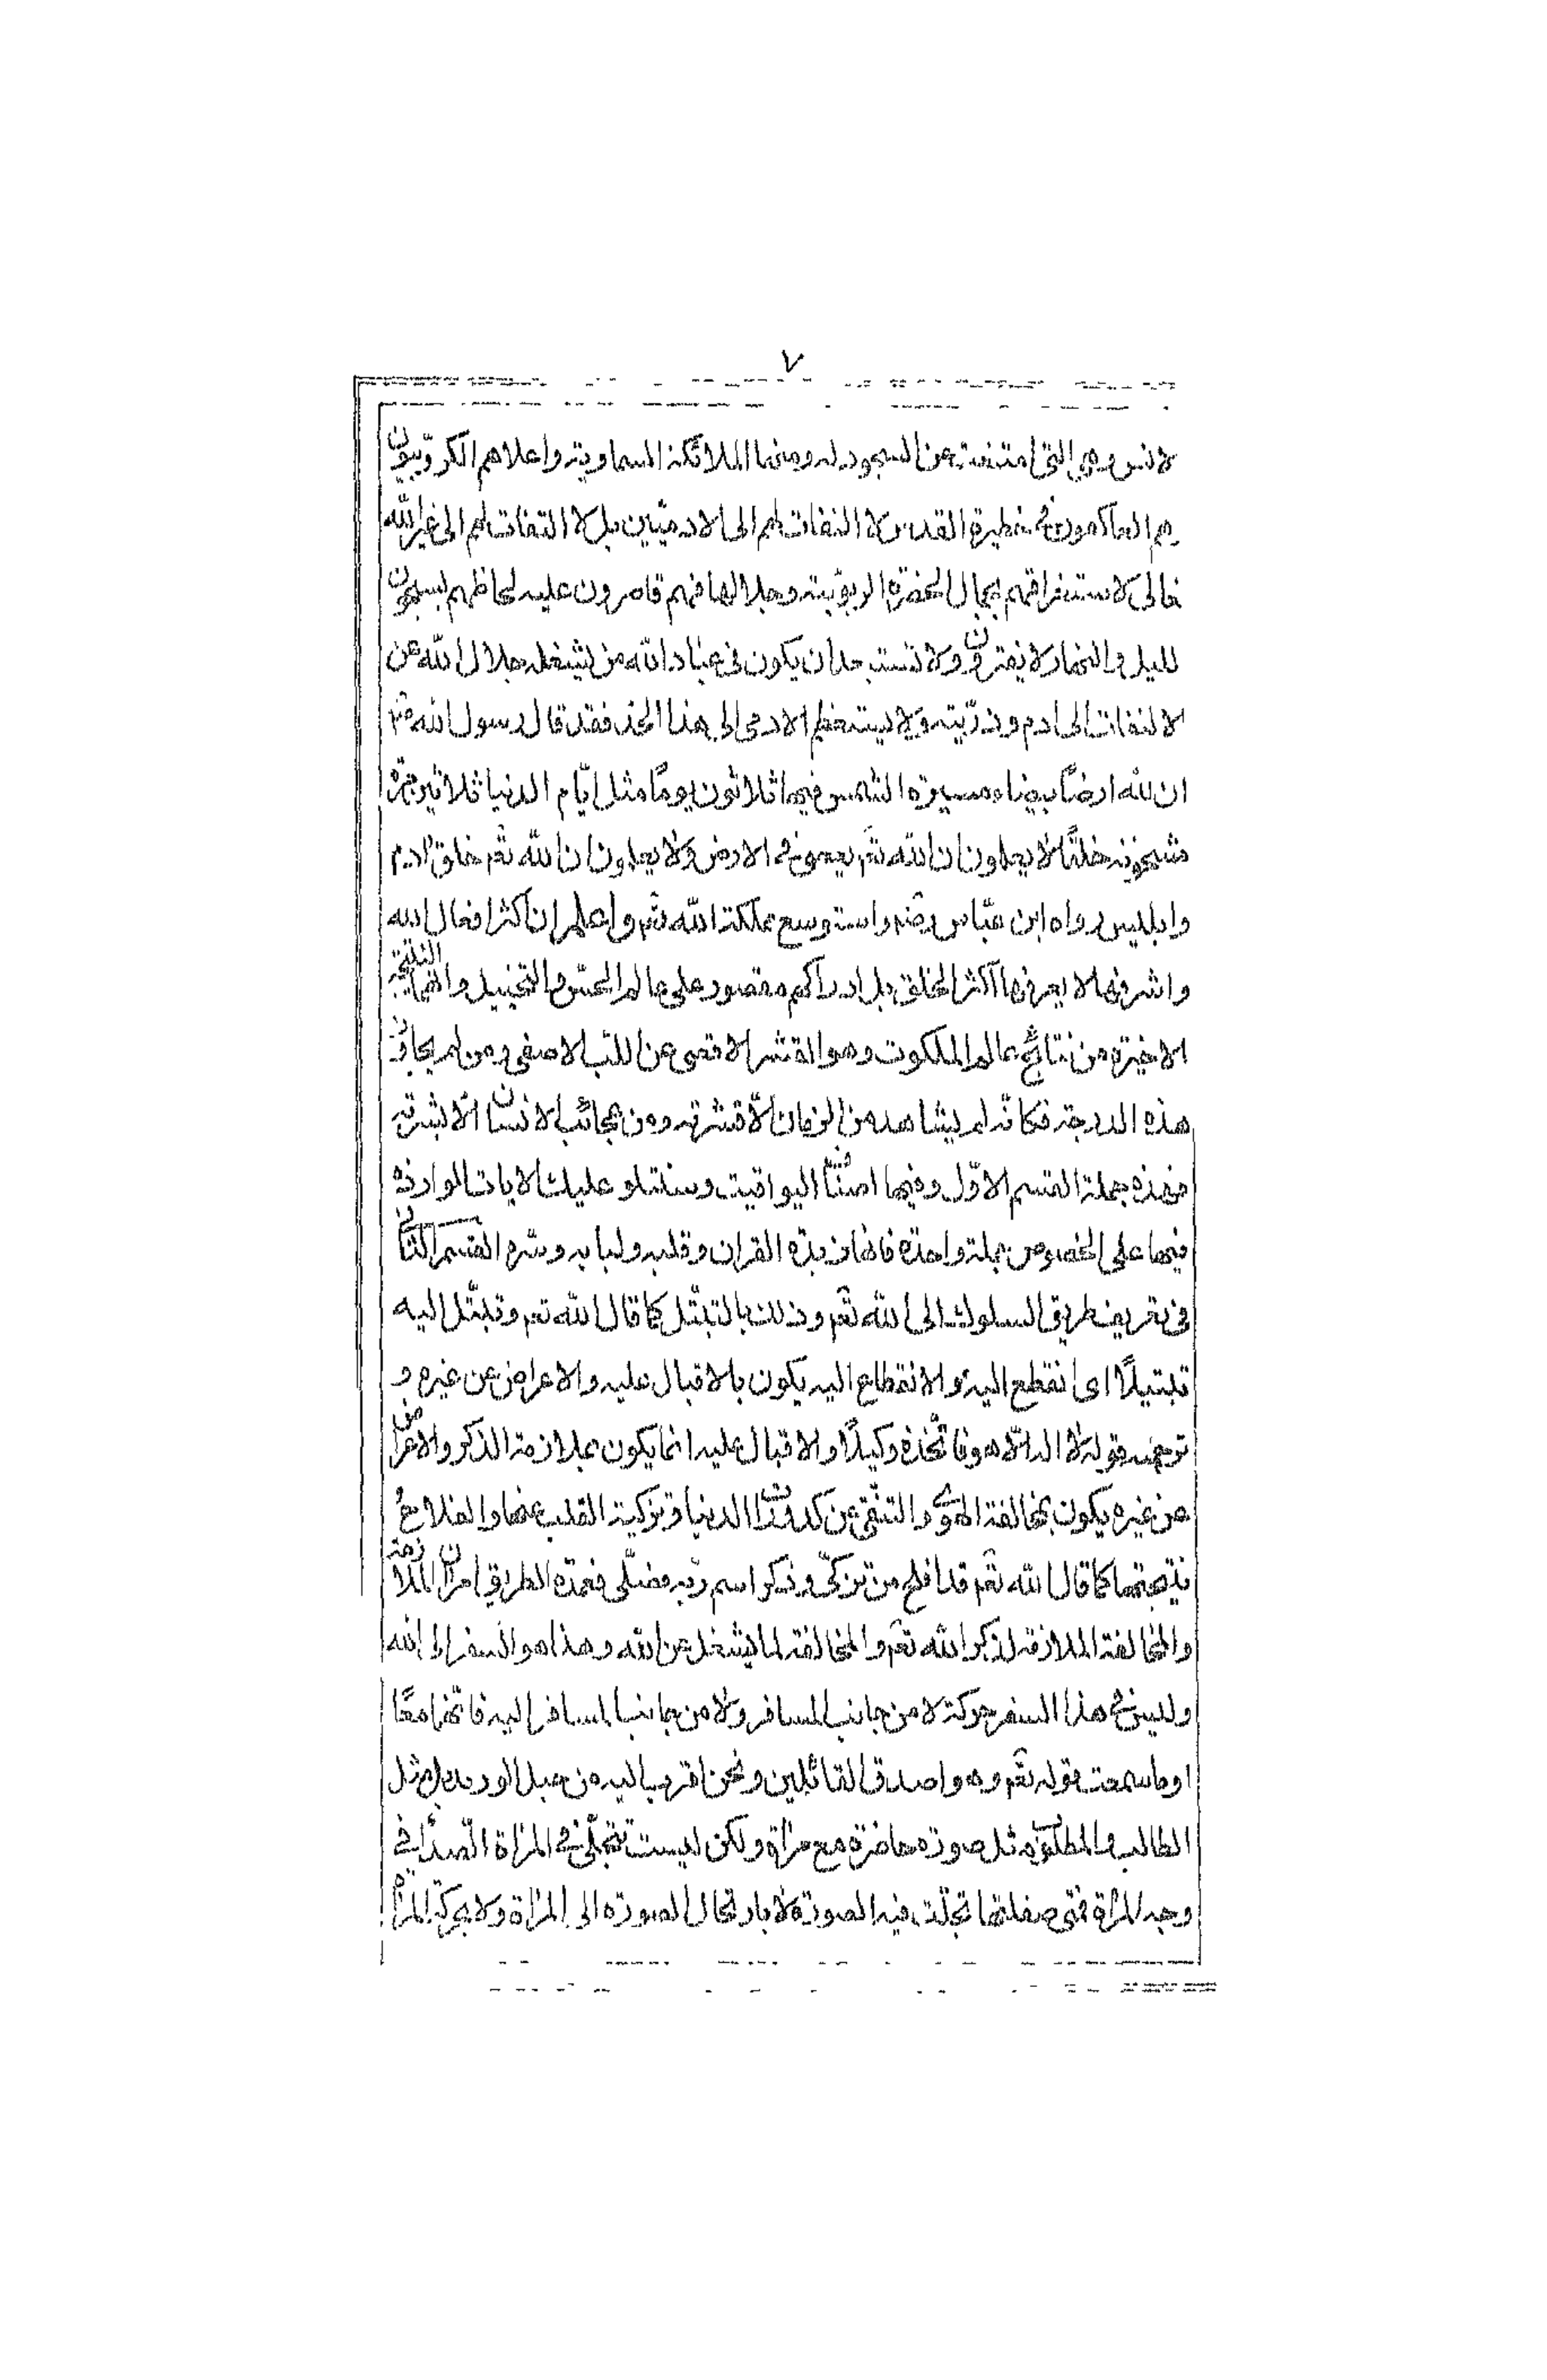 ٧
لانس وهي التي امتنعت عن السجود له ومنها الملائكة السماوية واعلاهم الكروبيون
هم العاكفون في حظيرة القدس لا التفات لهم الى الادميين بل لا التفات لهم الى غير الله
تعالى لاستغراقهم بجمال الحضرة الربوبية وجلالها فهم قاصرون عليه لحاظهم يسبحون
لليل والنهار لا يفترون ولا تستبعد ان يكون في عباد الله من يشغله جلال الله عن
الالتفات الى ادم وذريته ولا يستعظم الادمى الى هذا الحد فقد قال رسول الله صم
ان لله ارضًا بيضاء مسيرة الشمس فيها ثلاثون يومًا مثل ايّام الدنيا ثلاثين مرة
مشحونة خلقًا لا يعلمون ان الله تعم يعصى في الارض ولا يعلمون ان الله تعم خلق ادم
وابليس رواه ابن عبّاس رضم واستوسع مملكة الله تعم واعلم ان اكثر افعال الله
واشرفها لا يعرفها اكثر الخلق بل ادراكهم مقصور على عالم الحسّ والتخييل وانهما النتيجة
الاخيرة من نتائج عالم الملكوت وهو القشر الاقصى عن اللبّ الاصفى ومن لم يجاوز
هذه الدرجة فكانّه لم يشاهد من الرمان الّا قشرته ومن عجائب الانسان الّا بشرته
فهذه جملة القسم الاوّل وفيها اصناف اليواقيت وسنتلو عليك الايات الواردة
فيها على الخصوص جملة واحدة فانها زبدة القران وقلبه ولبابه وسرّه القسم الثانى
فى تعريف طريق السلوك الى الله تعم وذلك بالتبتّل كما قال الله تعم وتبتّل اليه
تبتيلًا اى انقطع اليه والانقطاع اليه يكون بالاقبال عليه والاعراض عن غيره و
ترجمته قوله لا اله الّا هو فاتّخذه وكيلًا والاقبال عليه انما يكون بملازمة الذكر والاعراض
عن غيره يكون بمخالفة الهوى والتنقّى عن كدورات الدنيا وتزكية القلب عنها والفلاح
نتيجتها كما قال الله تعم قد افلح من تزكّى وذكر اسم ربّه فصلّى فعمدة الطريق امران الملازمة
والمخالفة الملازمة لذكر الله تعم والمخالفة لما يشغل عن الله وهذا هو السفر الى الله
وليس في هذا السفر حركة لا من جانب المسافر ولا من جانب المسافر اليه فانّهما معًا
اوما سمعت قوله تعم وهو اصدق القائلين ونحن اقرب اليه من حبل الوريد بل مثل
الطالب والمطلوب مثل صورة حاضرة مع مراة ولكن ليست تتجلّى في المراة الصدأ في
وجه المراة فمتى صقلتها تجلّت فيه الصورة لا بارتحال الصورة الى المراة ولا بحركة المراة